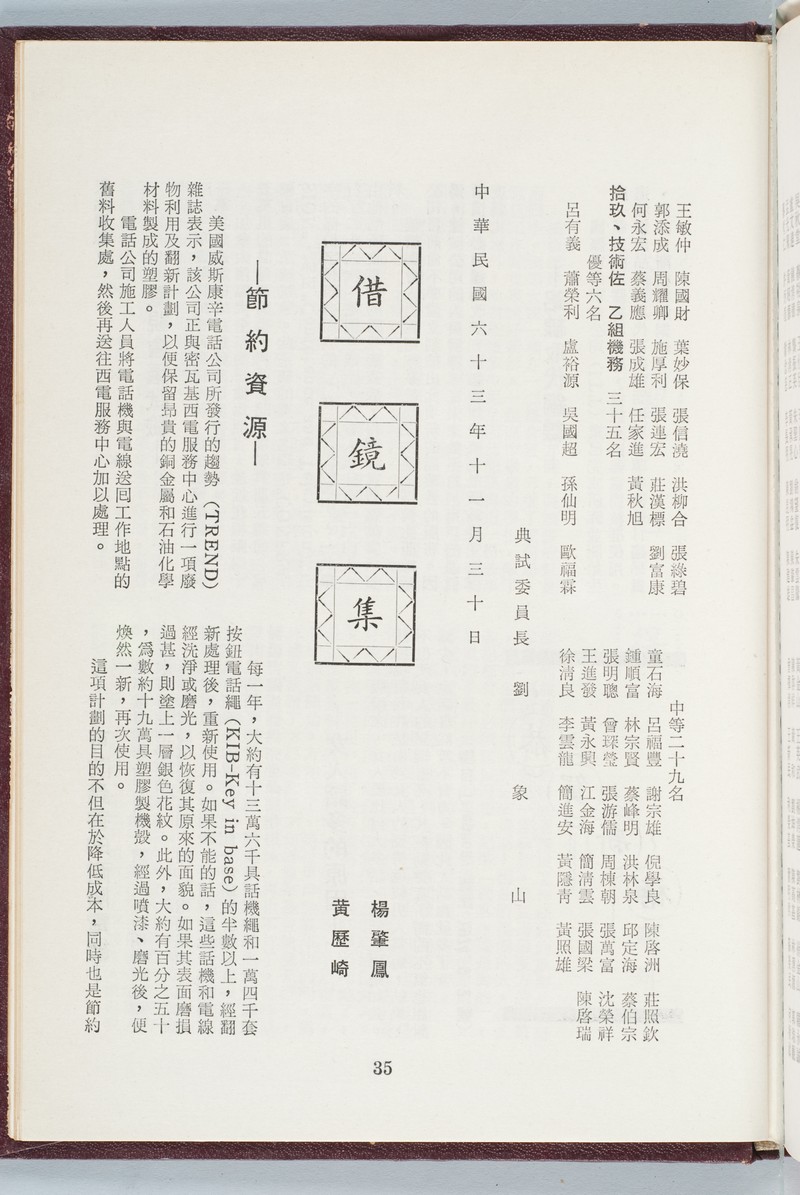 王敏仲　陳國財　葉妙保　張信澆　洪柳合　張綠碧
郭添成　周耀卿　施厚利　張連宏　莊漢標　劉富康
何永宏　蔡義應　張成雄　任家進　黃秋旭
拾玖、技術佐　乙組機務　三十五名
優等六名
呂有義　蕭榮利　盧裕源　吳國超　孫仙明　歐福霖
中等二十九名
童石海　呂福豐　謝宗雄　倪學良　陳啓洲　莊照欽
鍾順富　林宗賢　蔡峰明　洪林泉　邱定海　蔡伯宗
張明聰　曾琛瑩　張游儒　周棟朝　張萬富　沈榮祥
王進發　黃永興　江金海　簡淸雲　張國梁　陳啓瑞
徐淸良　李雲龍　簡進安　黃隱靑　黃照雄
典試委員長　劉　象　山
中華民國六十三年十一月三十日
借鏡集
楊肇鳳
黃歷崎
—節約資源—
美國威斯康辛電話公司所發行的趨勢（TREND）
雜誌表示，該公司正與密瓦基西電服務中心進行一項廢
物利用及翻新計劃，以便保留昂貴的銅金屬和石油化學
材料製成的塑膠。
電話公司施工人員將電話機與電線送回工作地點的
舊料收集處，然後再送往西電服務中心加以處理。
每一年，大約有十三萬六千具話機繩和一萬四千套
按鈕電話繩（KIB-Key in base）的半數以上，經翻
新處理後，重新使用。如果不能的話，這些話機和電線
經洗淨或磨光，以恢復其原來的面貌。如果其表面磨損
過甚，則塗上一層銀色花紋。此外，大約有百分之五十
，爲數約十九萬具塑膠製機殼，經過噴漆、磨光後，便
煥然一新，再次使用。
這項計劃的目的不但在於降低成本，同時也是節約
35